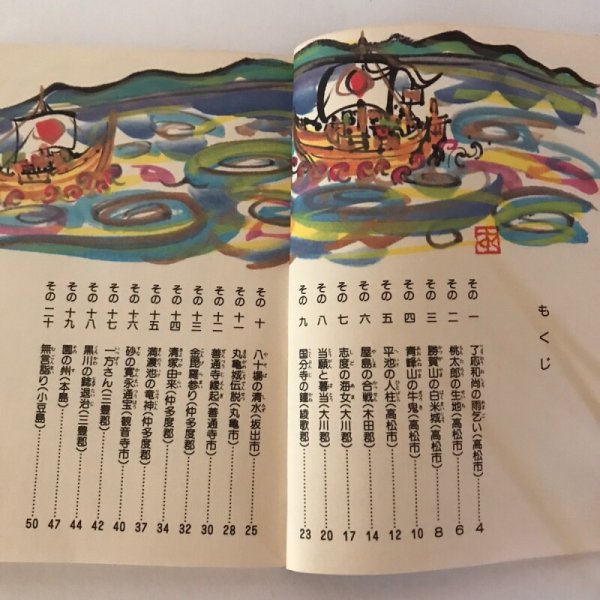 もくじ
その 一 了応和尚の雨乞い(高松市)……4
その 二 桃太郎の生地(高松市)……6
その 三 勝賀山の白米城(高松市)……8
その 四 青峰山の牛鬼(高松市)……10
その 五 平池の人柱(高松市)……12
その 六 屋島の合戦(木田郡)……14
その 七 志度の海女(大川郡)……17
その 八 当願と暮当(大川郡)……20
その 九 国分寺の鐘(綾歌郡)……23
その 十 八十場の清水(坂出市)……25
その十一 丸亀城伝説(丸亀市)……28
その十二 善通寺縁起(善通寺市)……30
その十三 金毘羅参り(仲多度郡)……32
その十四 清塚由来(仲多度郡)……34
その十五 満濃池の竜神(仲多度郡)……37
その十六 砂の寛永通宝(観音寺市)……40
その十七 一方さん(三豊郡)……42
その十八 黒川の鯰退治(三豊郡)……44
その十九 園の州(本島)……47
その二十 無言詣り(小豆島)……50